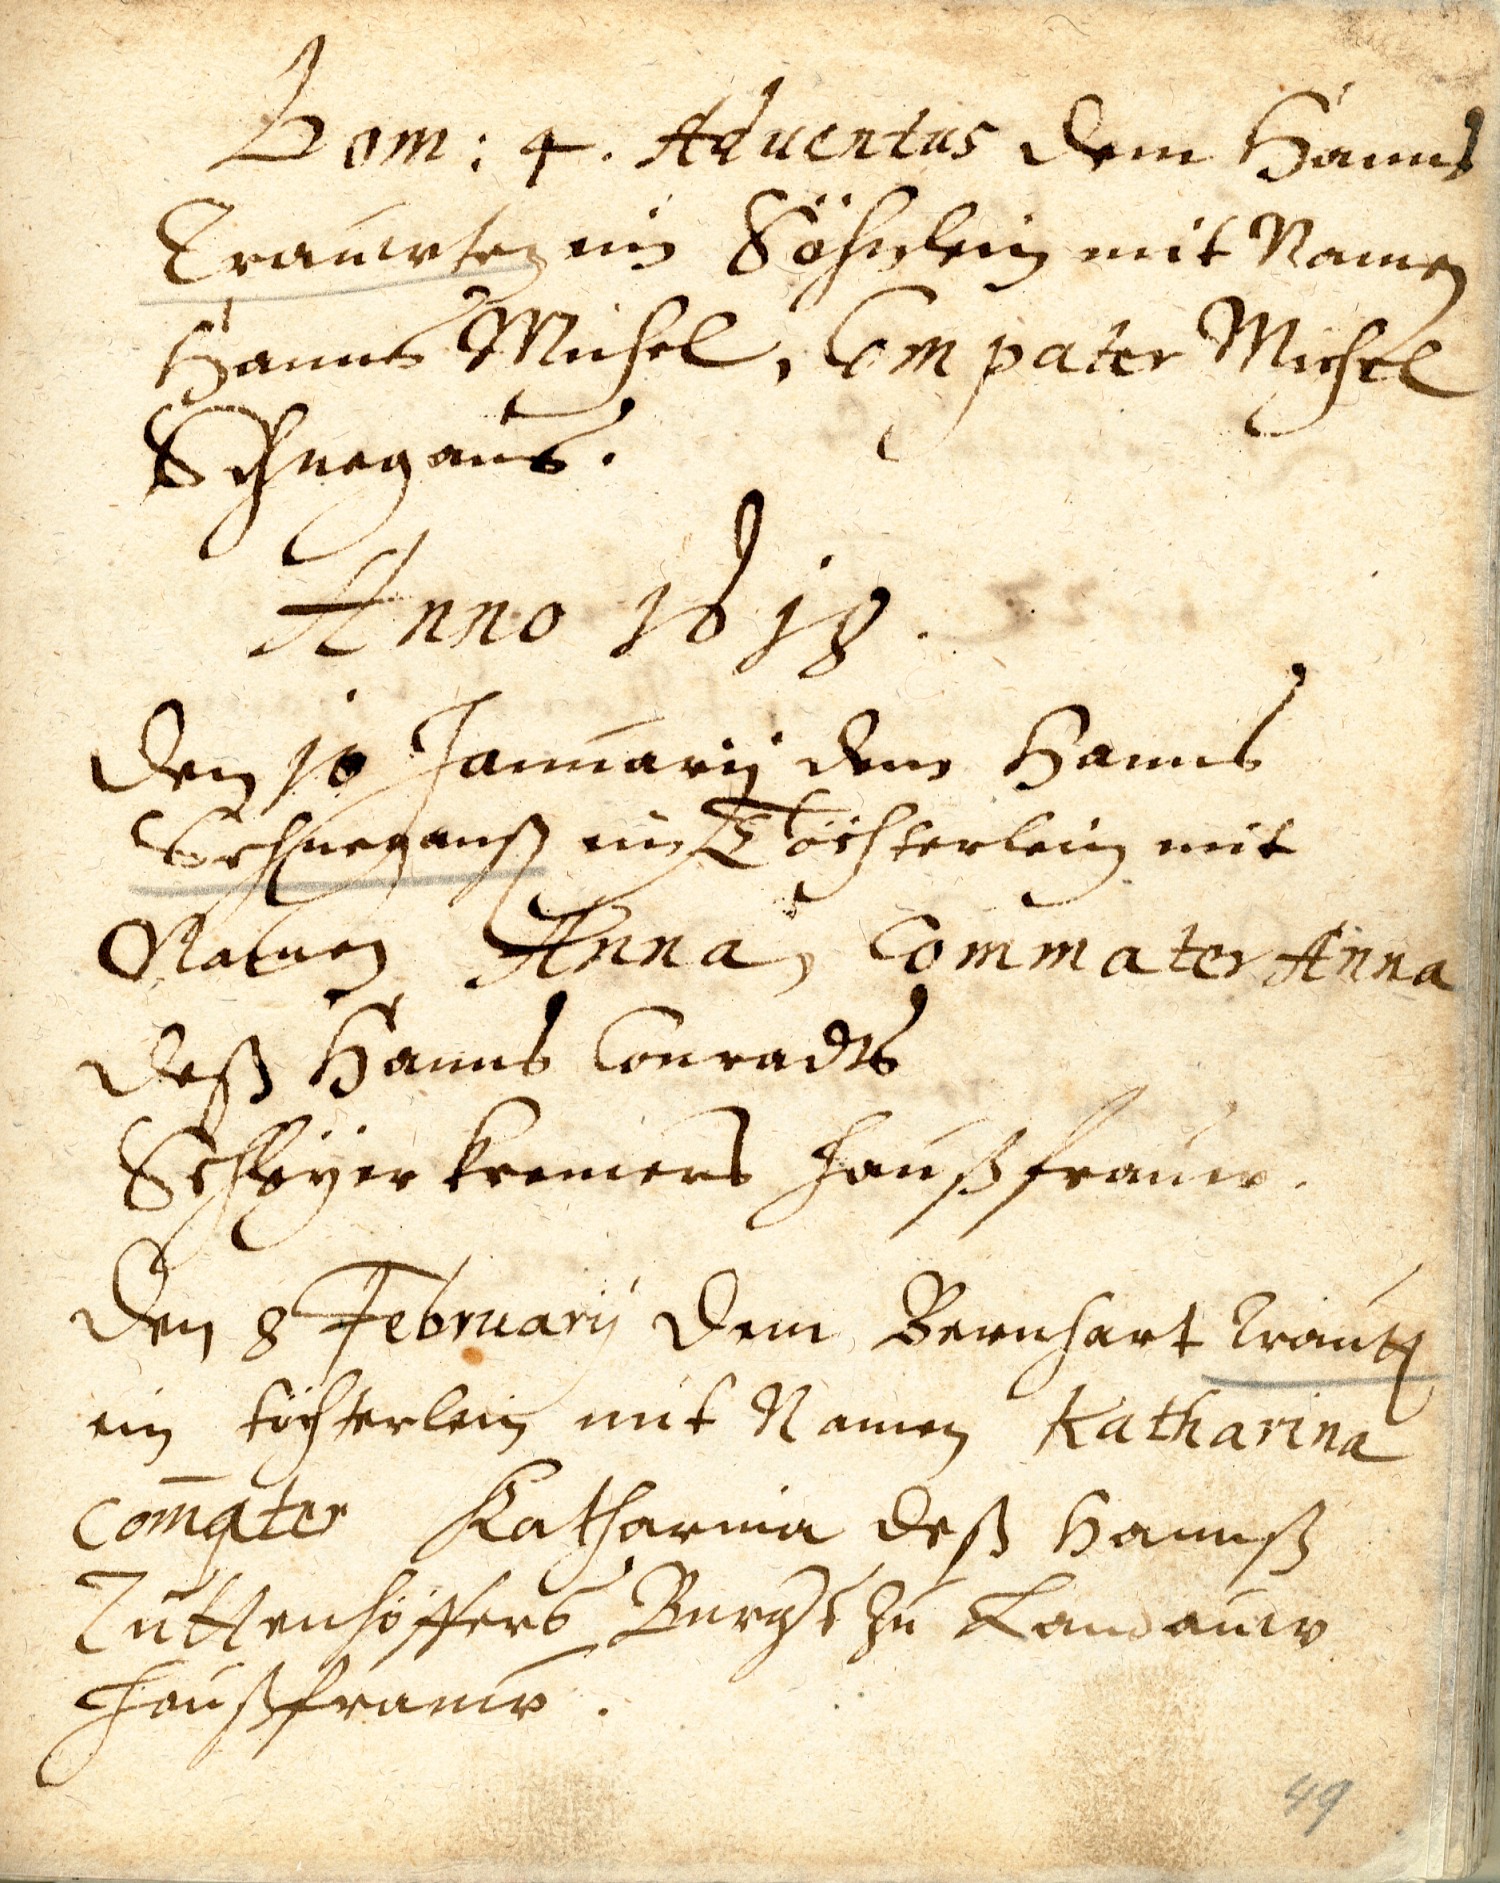 Dom: 4. Aduentus dem Hanns
Trauwten ein Söhnlein mit Namen
Hanns Michel, Compater Michel
Schnegans.
Anno 1618.
Den 10 Januarij dem Hanns
Schneganß ein Töchterlein mit
Namen Anna, Commater Anna
deß Hanns Conradts
Schleÿer kremers haußfrauw.
Den 8 Februarij dem Bernhart Trautt
ein töchterlein mit Namen Katharina
com̄ater Katharina deß Hannß
Tuttenhöffers Burgers zu Landauw
haußfrauw.
49